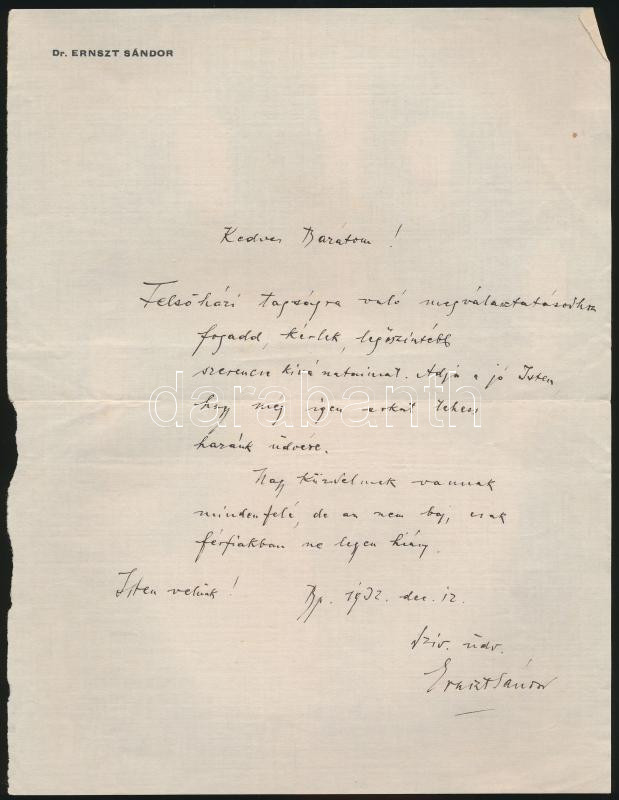 Dr. ERNSZT SÁNDOR
Kedves Barátom!
Felsőházi tagságra való megválasztatásodhoz
fogadd, kérlek, legőszintébb
szerencse kivánataimat. Adja a jó Isten,
hogy még igen sokat tehess
hazánk üdvére.
Nagy küzdelmek vannak
mindenfelé, de az nem baj, csak
férfiakban ne legyen hiány.
Isten velünk!
Bp. 1932. dec. 12.
Sziv. üdv.
Ernszt Sándor
darabanth.com